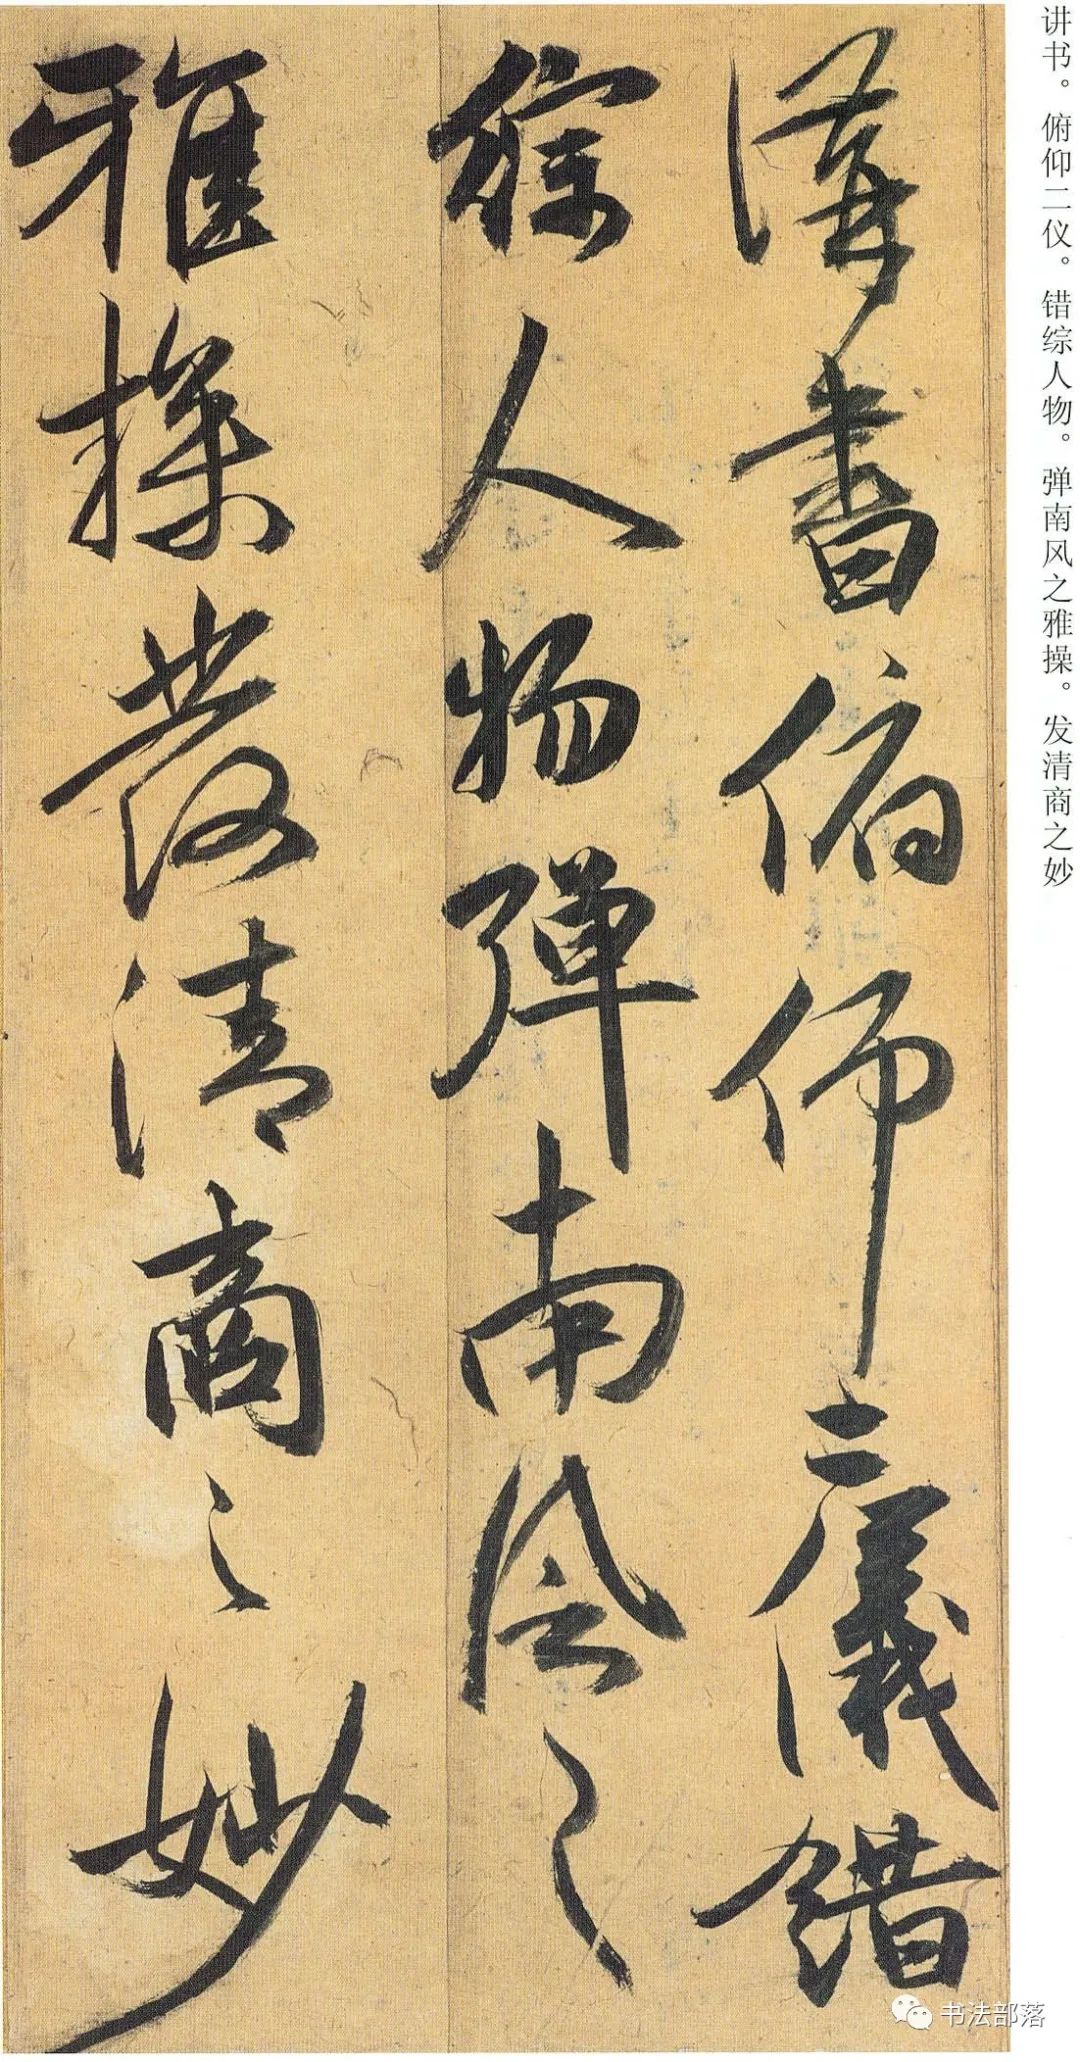 讲书。俯仰二仪。错综人物。弹南风之雅操。发清商之妙
講書俯仰二儀錯
綜人物彈南風之
雅操發清商之妙
书法部落